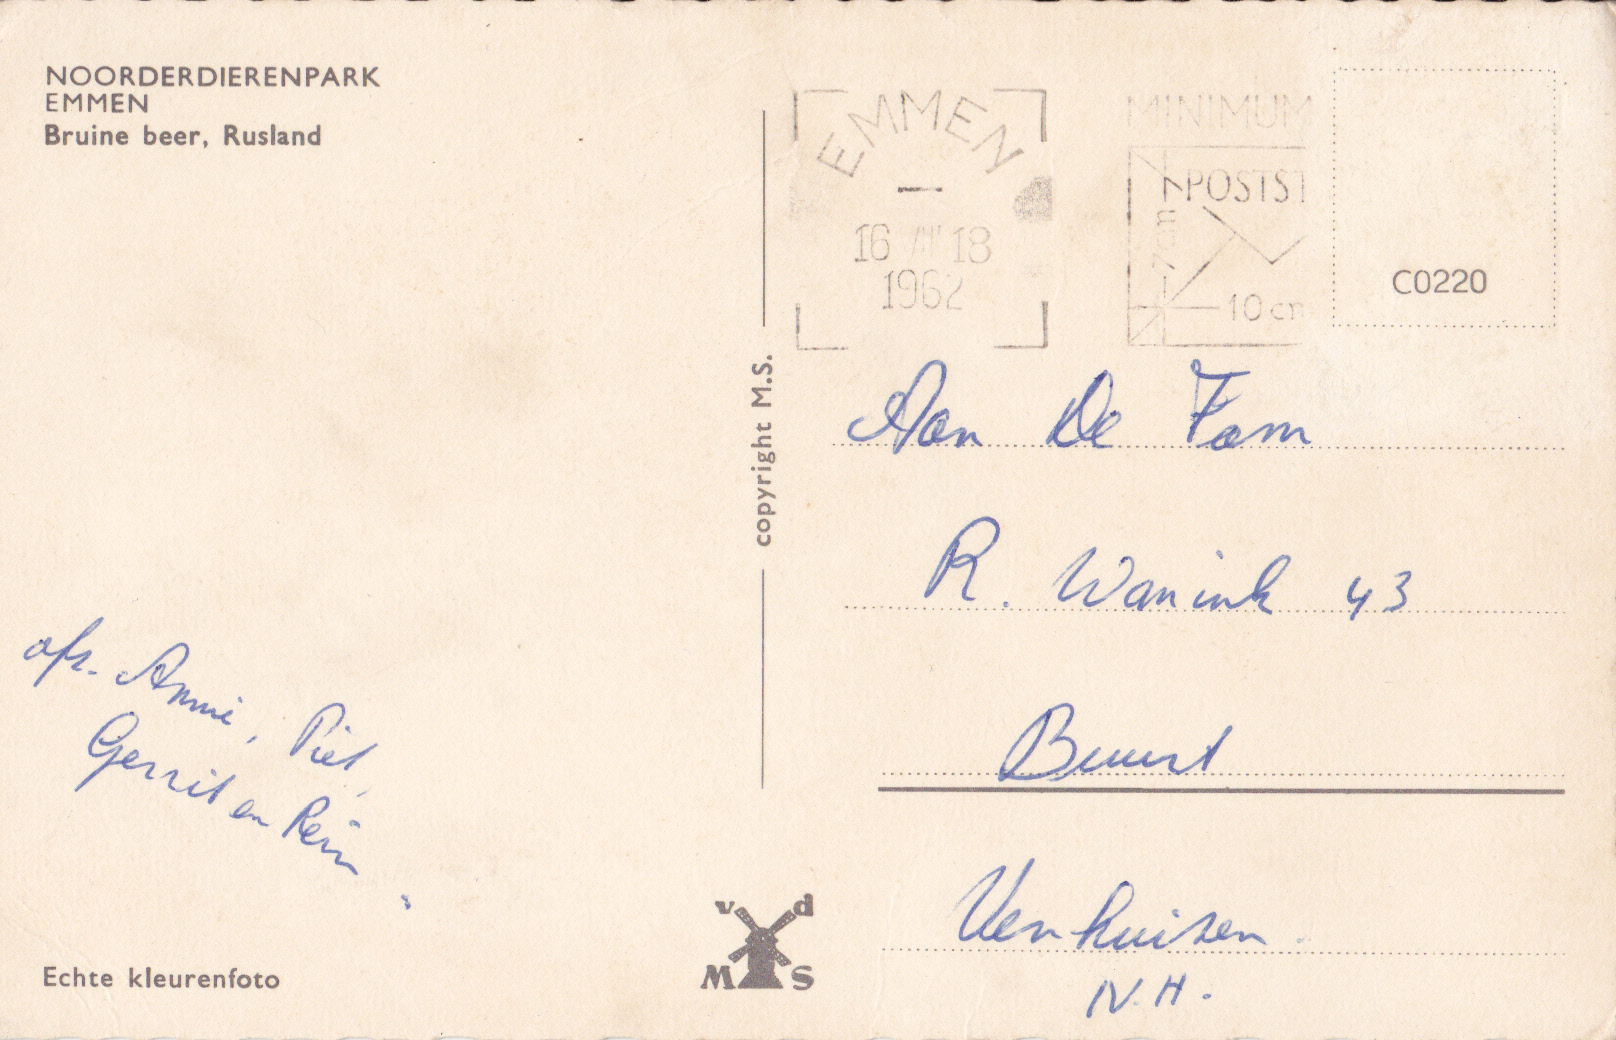 NOORDERDIERENPARK
EMMEN
Bruine beer, Rusland
EMMEN
16 18
1962
MINIMUM
POSTST
7 cm
10 cm
C0220
copyright M.S.
Aan De Fam
R. Wanink 43
Buurt
Venhuisen
N.H.
afz. Annie, Piet,
Gerrit en Rein
v d
M S
Echte kleurenfoto